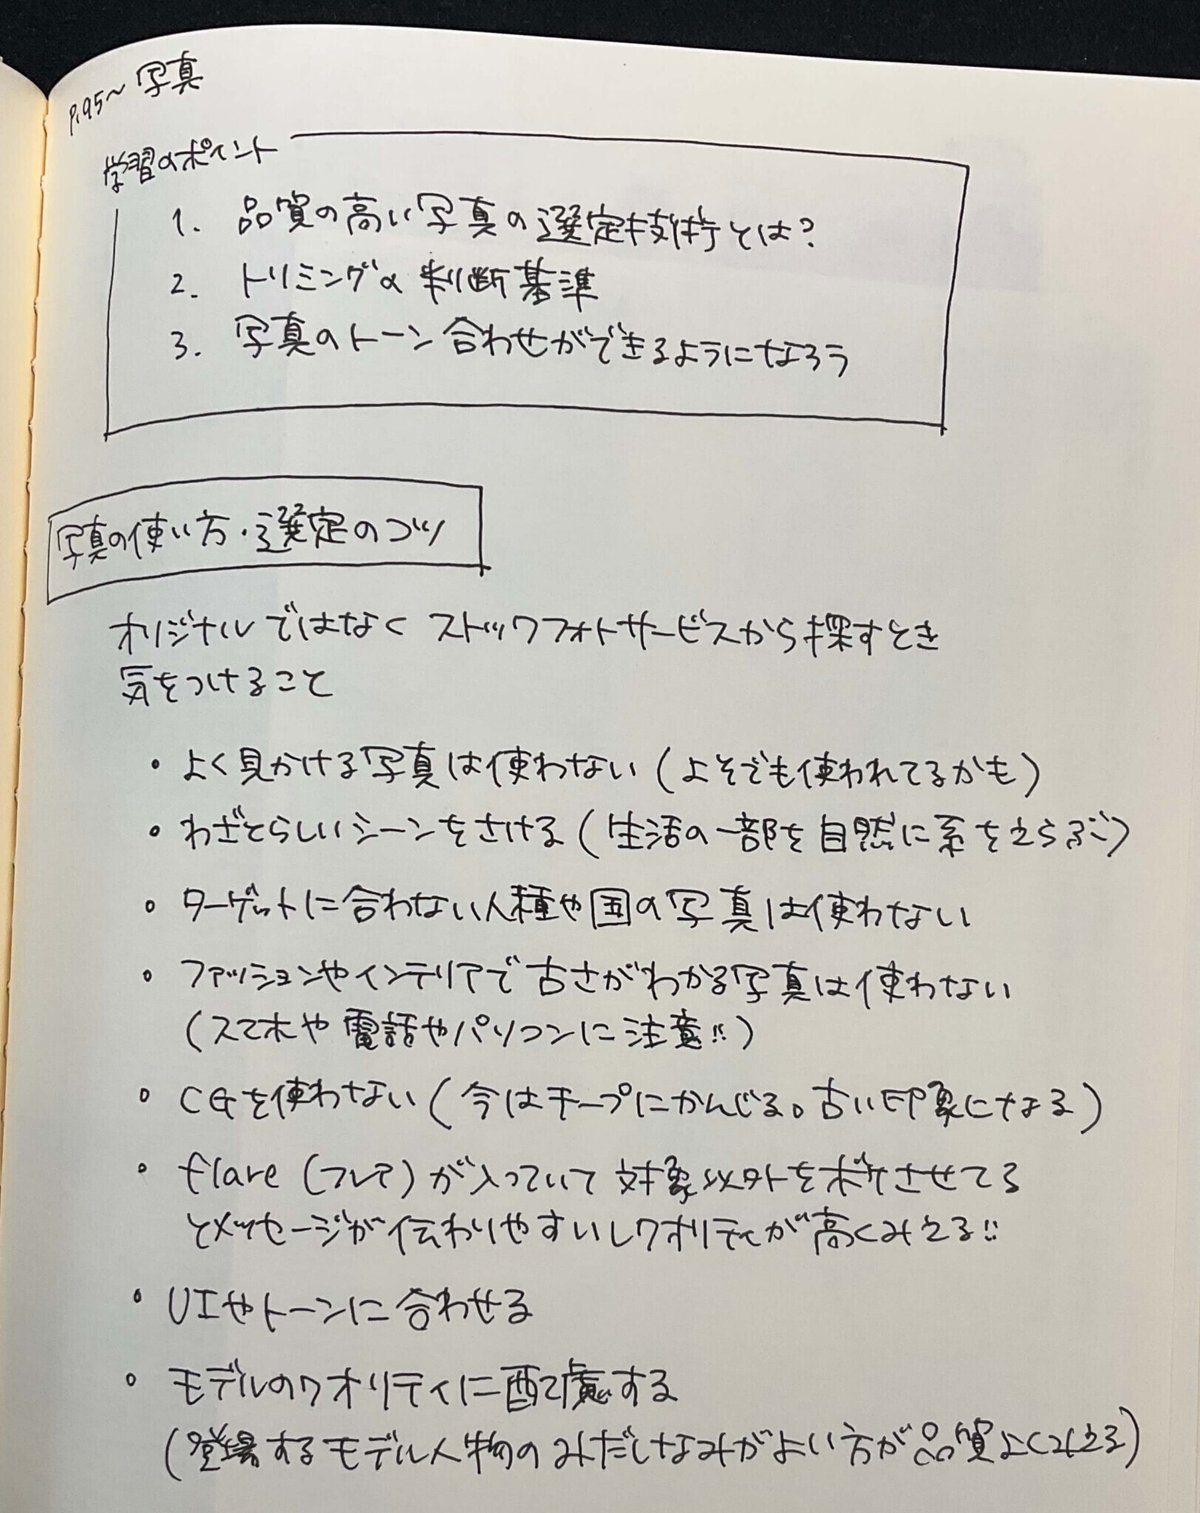 P.95〜 写真
学習のポイント
1. 品質の高い写真の選定技術とは?
2. トリミングの判断基準
3. 写真のトーン合わせができるようになろう
写真の使い方・選定のコツ
オリジナルではなくストックフォトサービスから探すとき
気をつけること
・よく見かける写真は使わない(よそでも使われてるかも)
・わざとらしいシーンをさける(生活の一部を自然に系をえらぶ)
・ターゲットに合わない人種や国の写真は使わない
・ファッションやインテリアで古さがわかる写真は使わない
(スマホや電話やパソコンに注意!!)
・CGを使わない(今はチープにかんじる。古い印象になる)
・flare(フレア)が入っていて対象以外をボケさせてる
とメッセージが伝わりやすいしクオリティが高くみえる!!
・UIやトーンに合わせる
・モデルのクオリティに配慮する
(登場するモデル人物のみだしなみがよい方が品質よくみえる)